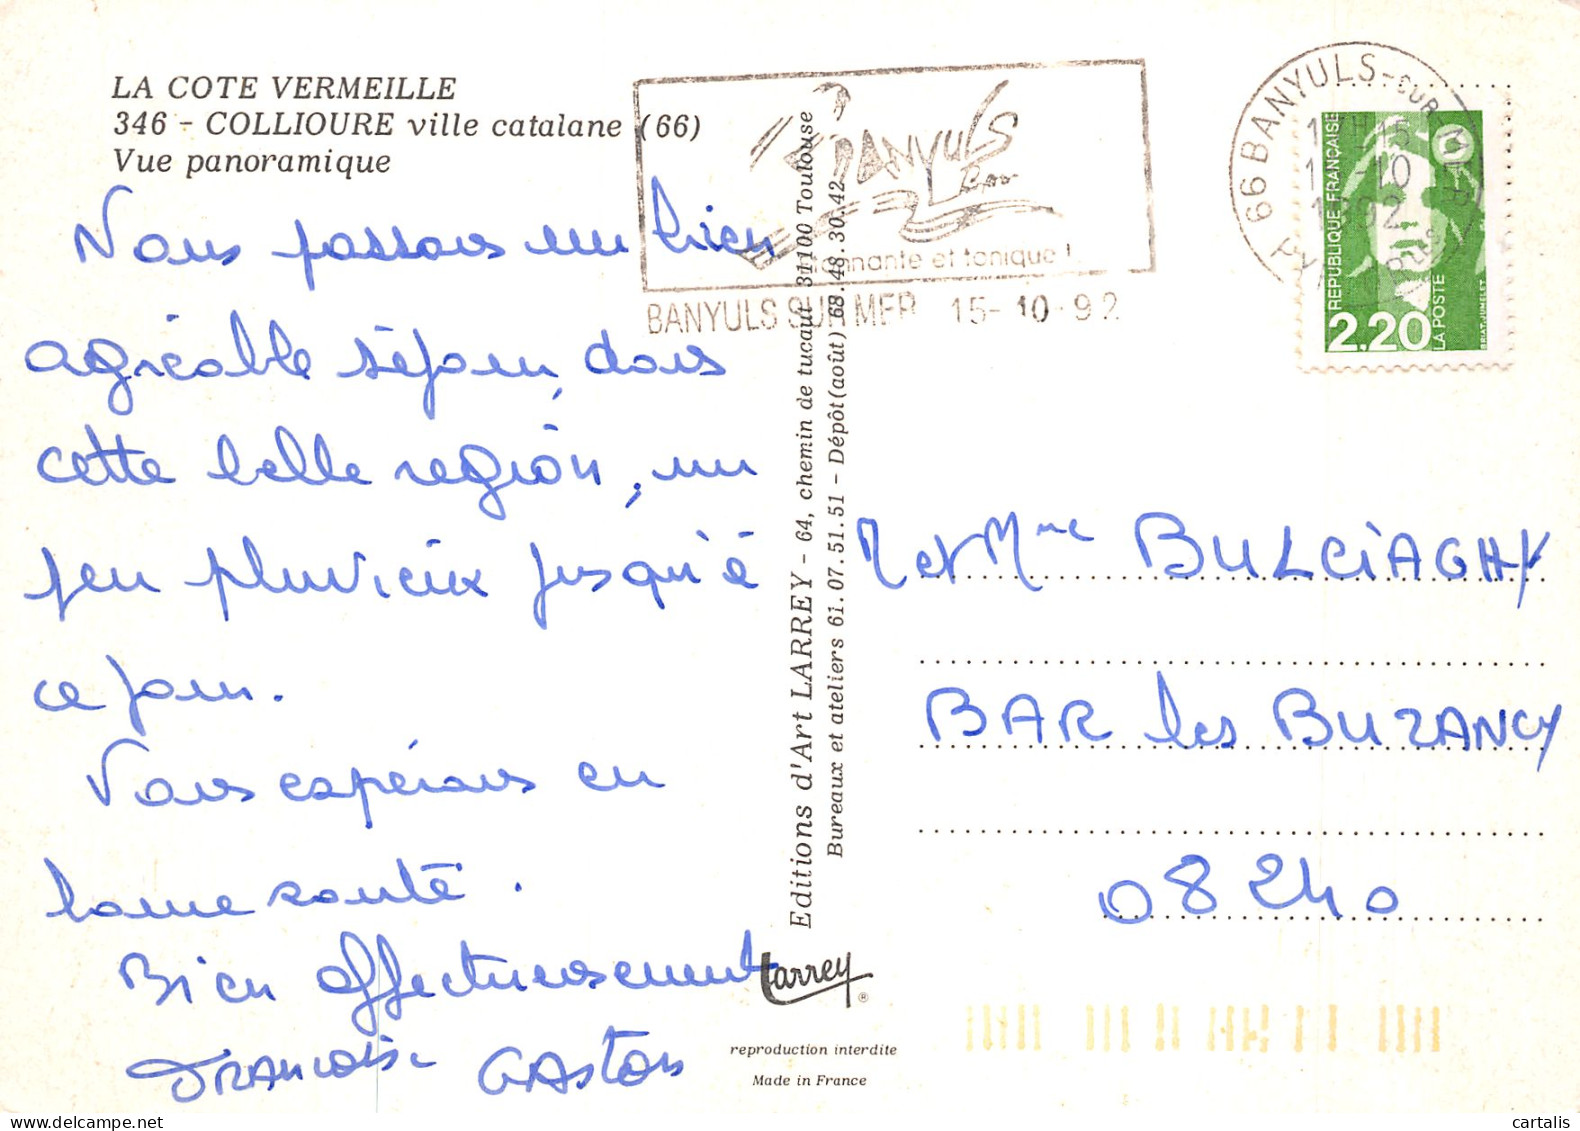 LA COTE VERMEILLE
346 - COLLIOURE ville catalane (66)
Vue panoramique
Nous passons un bien
agréable séjour, dans
cette belle région, un
peu pluvieux jusqu'à
ce jour.
Vous espérons en
bonne santé.
Bien affectueusement
Francoise Gaston
Editions d'Art LARREY - 64, chemin de tucaut 31100 Toulouse
Bureaux et ateliers 61.07.51.51 - Dépôt (août) 68.48.30.42
Larrey ®
reproduction interdite
Made in France
BANYULS
et tonique !
BANYULS SUR MER 15-10-92
66 BANYULS-SUR-MER
REPUBLIQUE FRANÇAISE
2,20
LA POSTE
BRIAT-JUMELET
M et Mme BULCIAGHY
BAR les BUZANCY
08240
cartalis